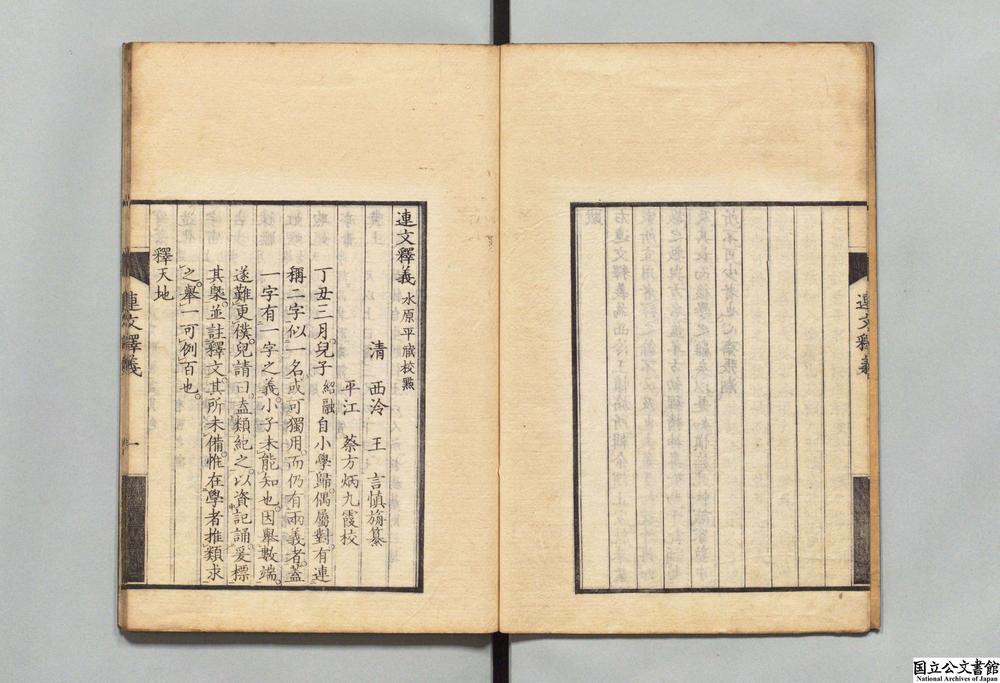 連文釋義 水原平臧校㸃
清 西泠 王 言慎旃纂
平江 蔡方炳九霞校
丁丑三月兒子紹融自小學歸偶屬對有連
稱二字似一名或可獨用而仍有兩義者蓋
一字有一字之義小子未能知也因舉數端
遂難更僕兒請曰盍類紀之以資記誦爰標
其槩並註釋文其所未備惟在學者推類求
之舉一可例百也
釋天地
連文釋義
一
連文釋義
国立公文書館
National Archives of Japan